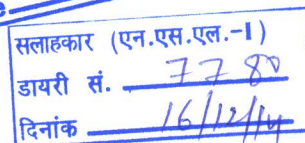 सलाहकार (एन.एस.एल.-I)
डायरी सं. 7780
दिनांक 16/12/14